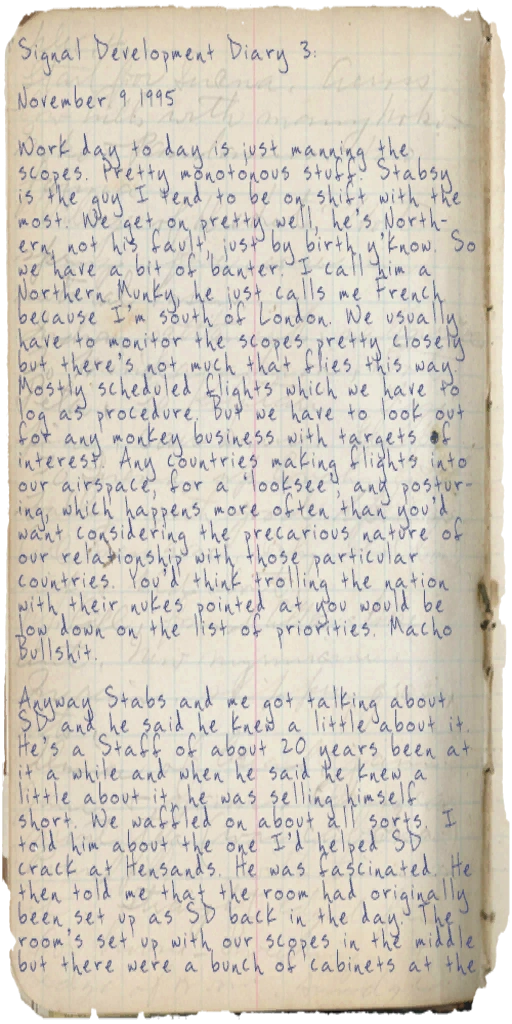 Signal Development Diary 3:
November 9 1995
Work day to day is just manning the
scopes. Pretty monotonous stuff. Stabsy
is the guy I tend to be on shift with the
most. We get on pretty well, he's North-
ern, not his fault, just by birth y'know. So
we have a bit of banter. I call him a
Northern Munky, he just calls me French
because I'm south of London. We usually
have to monitor the scopes pretty closely
but there's not much that flies this way.
Mostly scheduled flights which we have to
log as procedure. But we have to look out
for any monkey business with targets of
interest. Any countries making flights into
our airspace, for a 'looksee', and postur-
ing, which happens more often than you'd
want considering the precarious nature of
our relationship with those particular
countries. You'd think trolling the nation
with their nukes pointed at you would be
low down on the list of priorities. Macho
Bullshit.
Anyway Stabs and me got talking about
SD and he said he knew a little about it.
He's a Staff of about 20 years been at
it a while and when he said he knew a
little about it, he was selling himself
short. We waffled on about all sorts. I
told him about the one I'd helped SD
crack at Hensands. He was fascinated. He
then told me that the room had originally
been set up as SD back in the day. The
room's set up with our scopes in the middle
but there were a bunch of cabinets at the